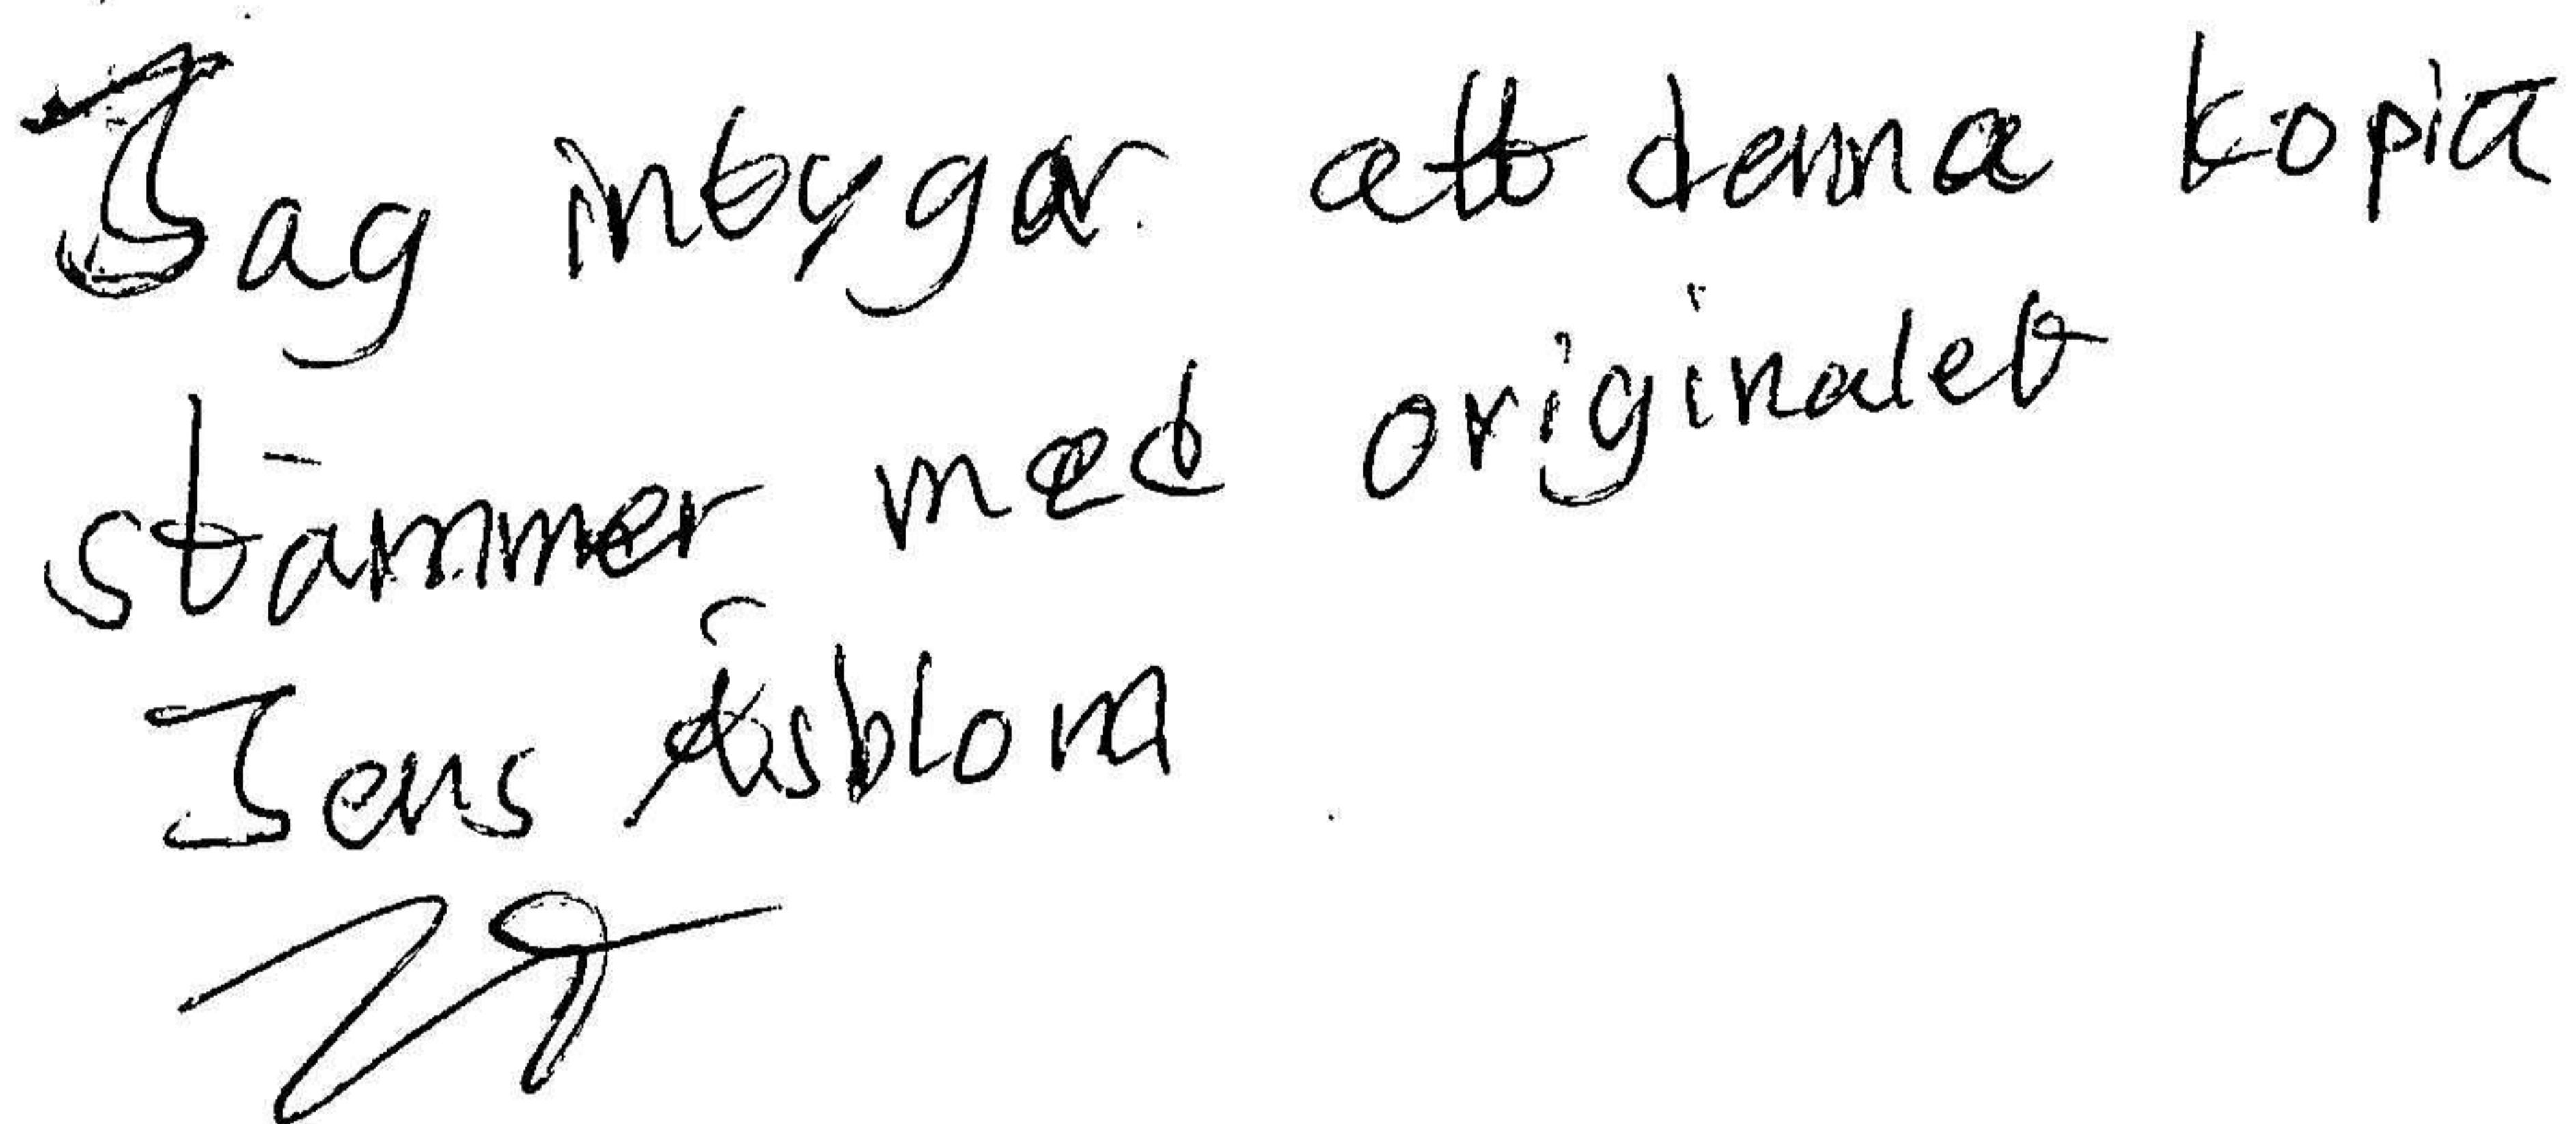 Jag intygar att denna kopia
stämmer med originalet
Jens Åsblom